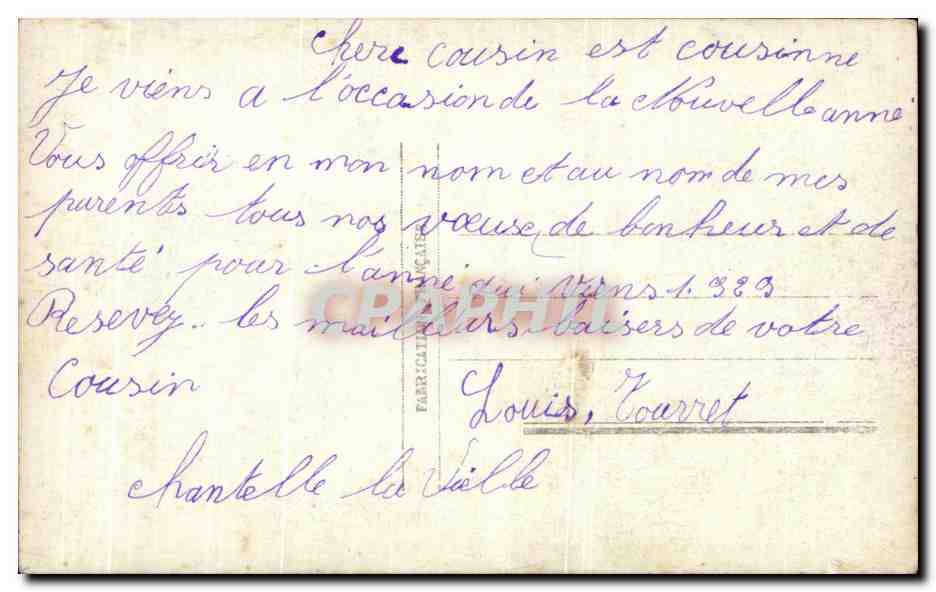 chere cousin est cousinne
Je viens a l'occasion de la Nouvelle anné
Vous offrir en mon nom et au nom de mes
parents tous nos vœuse de bonheur et de
santé pour l'anné qui viens 1.929
Resevez.. les mailleurs baisers de votre
Cousin
Louis, Tourret
chantelle la Vielle
FABRICATION FRANÇAISE
CPAPHIL